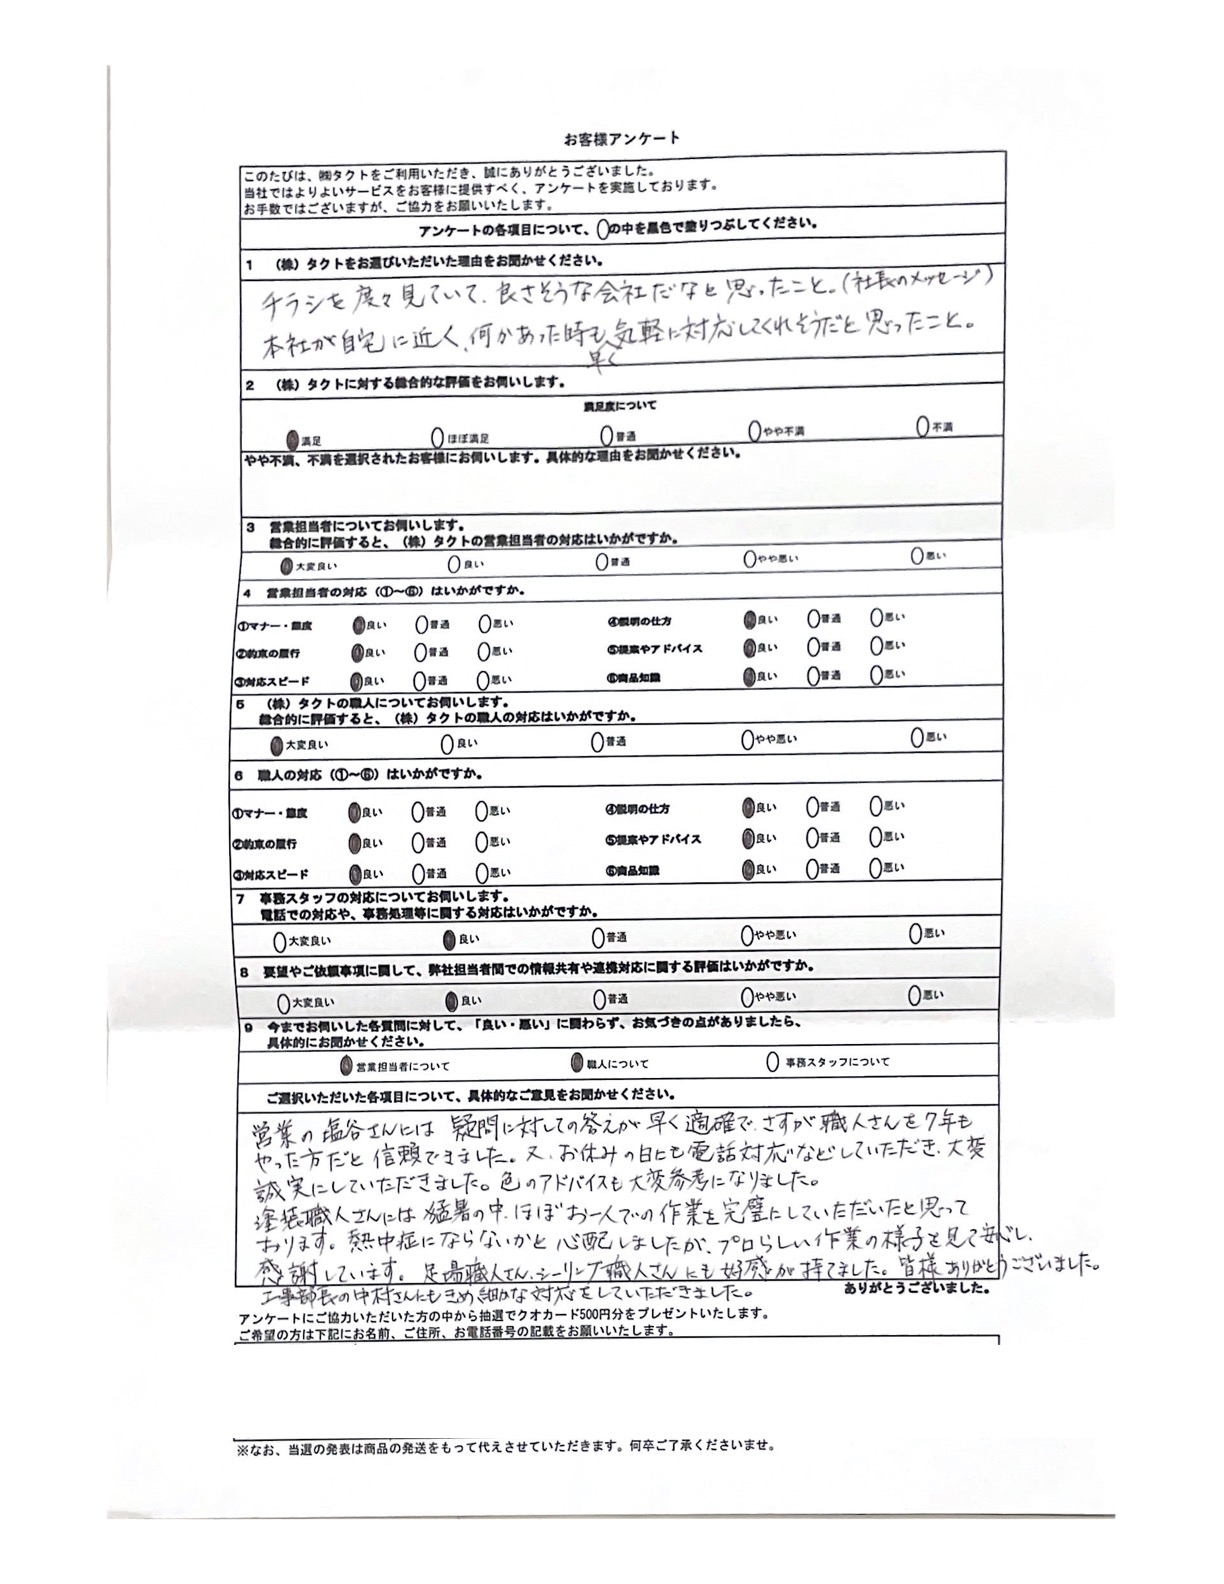 お客様アンケート
このたびは、㈱タクトをご利用いただき、誠にありがとうございました。
当社ではよりよいサービスをお客様に提供すべく、アンケートを実施しております。
お手数ではございますが、ご協力をお願いいたします。
アンケートの各項目について、○の中を黒色で塗りつぶしてください。
1 (株)タクトをお選びいただいた理由をお聞かせください。
チラシを度々見ていて、良さそうな会社だなと思ったこと。(社長のメッセージ)
本社が自宅に近く、何かあった時も気軽に対応してくれそうだと思ったこと。
早く
2 (株)タクトに対する総合的な評価をお伺いします。
満足度について
満足 ほぼ満足 普通 やや不満 不満
やや不満、不満を選択されたお客様にお伺いします。具体的な理由をお聞かせください。
3 営業担当者についてお伺いします。
総合的に評価すると、(株)タクトの営業担当者の対応はいかがですか。
大変良い 良い 普通 やや悪い 悪い
4 営業担当者の対応(①~⑥)はいかがですか。
①マナー・態度 良い 普通 悪い ④説明の仕方 良い 普通 悪い
②約束の履行 良い 普通 悪い ⑤提案やアドバイス 良い 普通 悪い
③対応スピード 良い 普通 悪い ⑥商品知識 良い 普通 悪い
5 (株)タクトの職人についてお伺いします。
総合的に評価すると、(株)タクトの職人の対応はいかがですか。
大変良い 良い 普通 やや悪い 悪い
6 職人の対応(①~⑥)はいかがですか。
①マナー・態度 良い 普通 悪い ④説明の仕方 良い 普通 悪い
②約束の履行 良い 普通 悪い ⑤提案やアドバイス 良い 普通 悪い
③対応スピード 良い 普通 悪い ⑥商品知識 良い 普通 悪い
7 事務スタッフの対応についてお伺いします。
電話での対応や、事務処理等に関する対応はいかがですか。
大変良い 良い 普通 やや悪い 悪い
8 要望やご依頼事項に関して、弊社担当者間での情報共有や連携対応に関する評価はいかがですか。
大変良い 良い 普通 やや悪い 悪い
9 今までお伺いした各質問に対して、「良い・悪い」に関わらず、お気づきの点がありましたら、
具体的にお聞かせください。
営業担当者について 職人について 事務スタッフについて
ご選択いただいた各項目について、具体的なご意見をお聞かせください。
営業の塩谷さんには疑問に対しての答えが早く適確で、さすが職人さんを7年も
やった方だと信頼できました。又、お休みの日にも電話対応などしていただき、大変
誠実にしていただきました。色のアドバイスも大変参考になりました。
塗装職人さんには猛暑の中、ほぼお一人での作業を完璧にしていただいたと思って
おります。熱中症にならないかと心配しましたが、プロらしい作業の様子を見て安心し、
感謝しています。足場職人さん、シーリング職人さんにも好感が持てました。皆様ありがとうございました。
工事部長の中村さんにもきめ細かな対応をしていただきました。
ありがとうございました。
アンケートにご協力いただいた方の中から抽選でクオカード500円分をプレゼントいたします。
ご希望の方は下記にお名前、ご住所、お電話番号の記載をお願いいたします。
※なお、当選の発表は商品の発送をもって代えさせていただきます。何卒ご了承くださいませ。